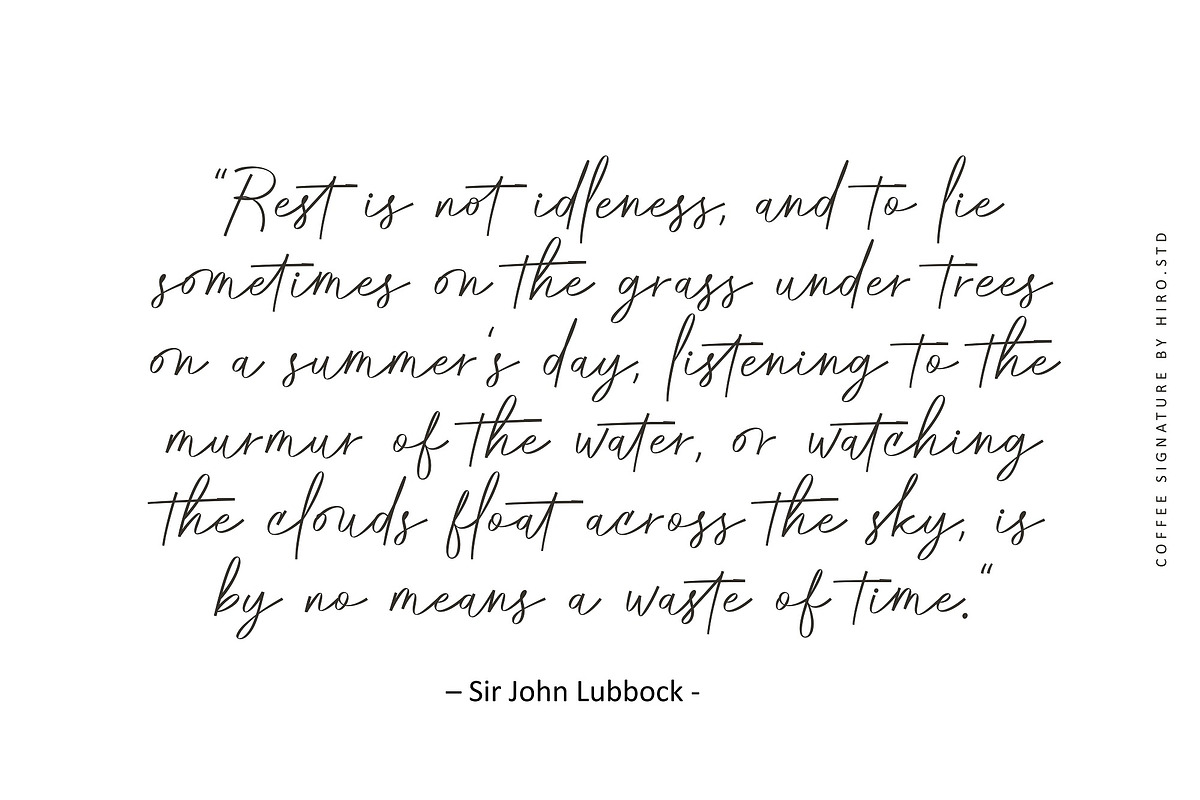 “Rest is not idleness, and to lie
sometimes on the grass under trees
on a summer's day, listening to the
murmur of the water, or watching
the clouds float across the sky, is
by no means a waste of time.“
– Sir John Lubbock -
COFFEE SIGNATURE BY HIRO.STD